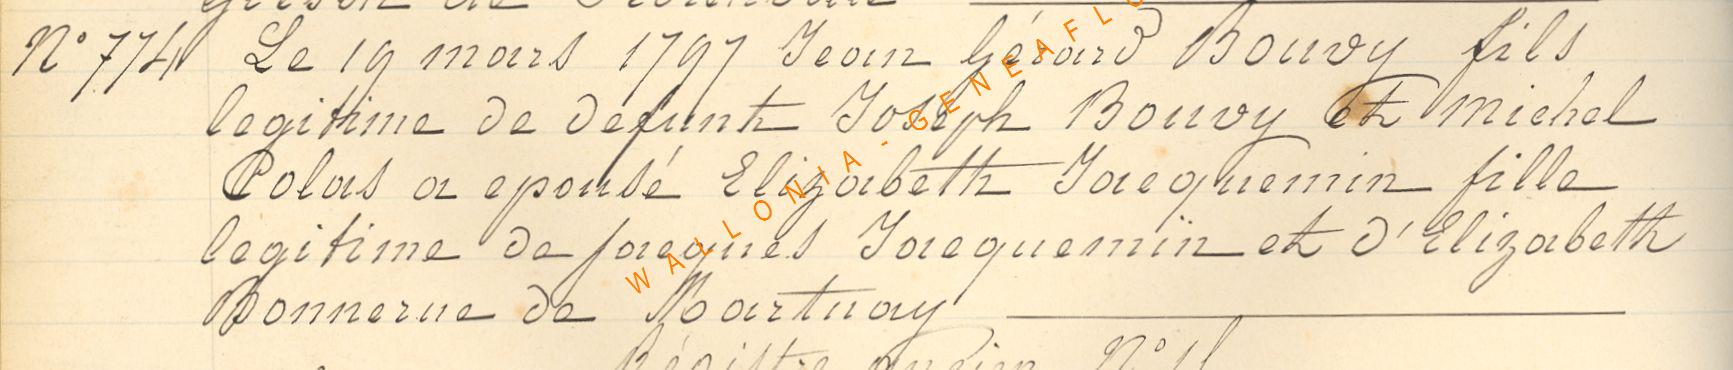 N° 774 Le 19 mars 1797 Jean Gérard Bouvy fils
legitime de defunt Joseph Bouvy et michel
Colas a epousé Elizabeth Jacquemin fille
legitime de jacques Jacquemin et d'Elizabeth
Bonnerue de
Régistre ancien N°
WALLONIA-GENEAFLO